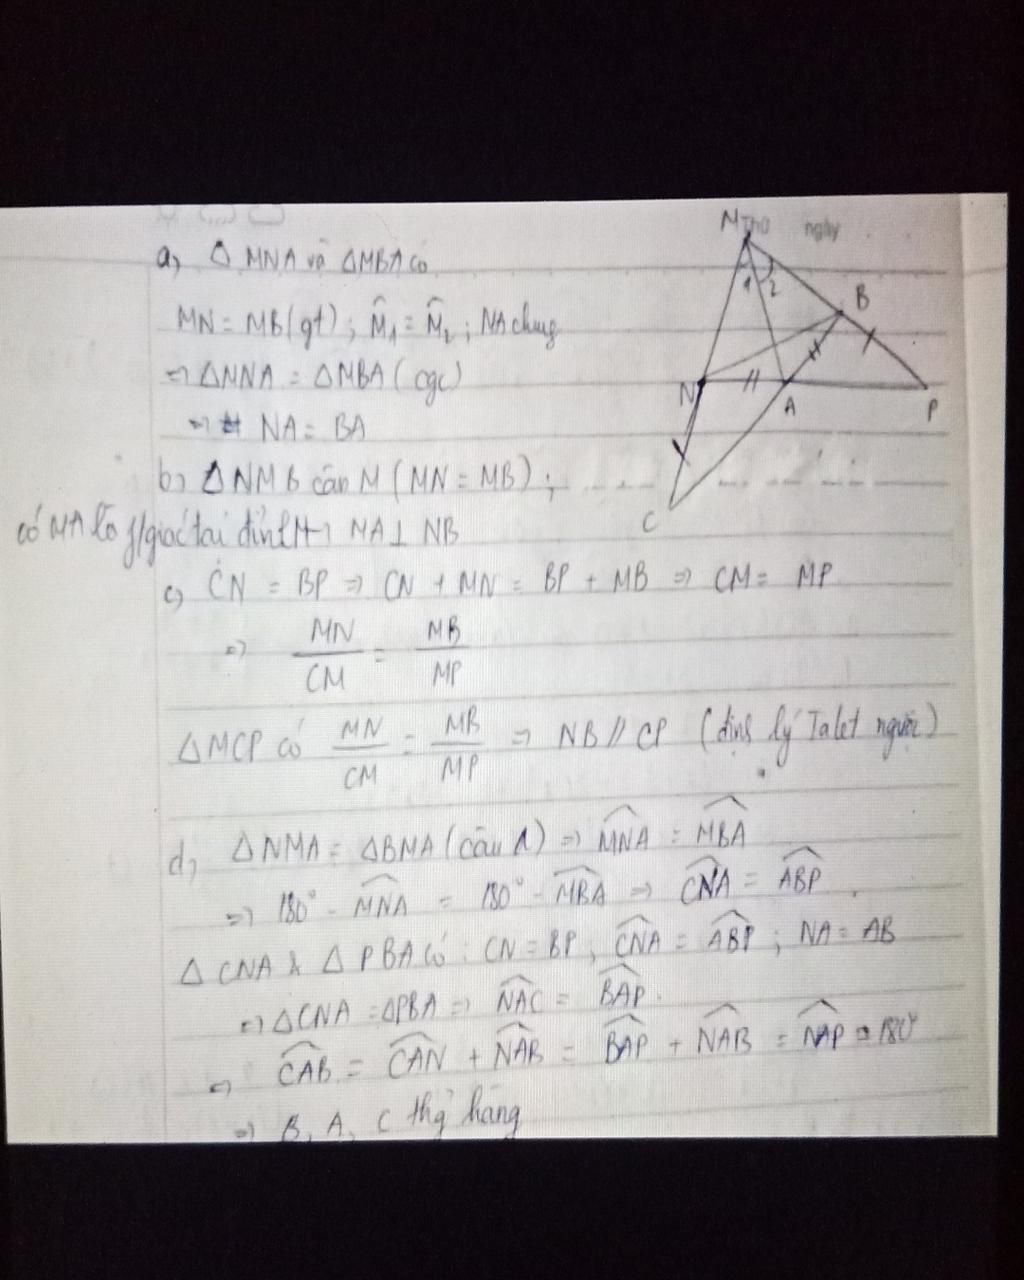 Thứ ngày
M
1 2
B
N
A
P
C
a, Δ MNA và ΔMBA có
MN = MB (gt) ; M̂₁ = M̂₂ ; MA chung
=> ΔMNA = ΔMBA ( cgc)
=> NA = BA
b, ΔNMB cân M (MN = MB) ;
có MA là f/giác tại đỉnh M => MA ⊥ NB
c, CN = BP => CN + MN = BP + MB => CM = MP
=> MN/CM = MB/MP
ΔMCP có MN/CM = MB/MP => NB // CP (định lý Talet ngược)
d, ΔNMA = ΔBMA (câu a) => M̂NA = M̂BA
=> 180° - M̂NA = 180° - M̂BA => ĈNA = ÂBP
Δ CNA & Δ PBA có : CN = BP ; ĈNA = ÂBP ; NA = AB
=> ΔCNA = ΔPBA => N̂AC = B̂AP
=> ĈAB = ĈAN + N̂AB = B̂AP + N̂AB = N̂AP = 180°
=> B, A, C thg̉ hàng